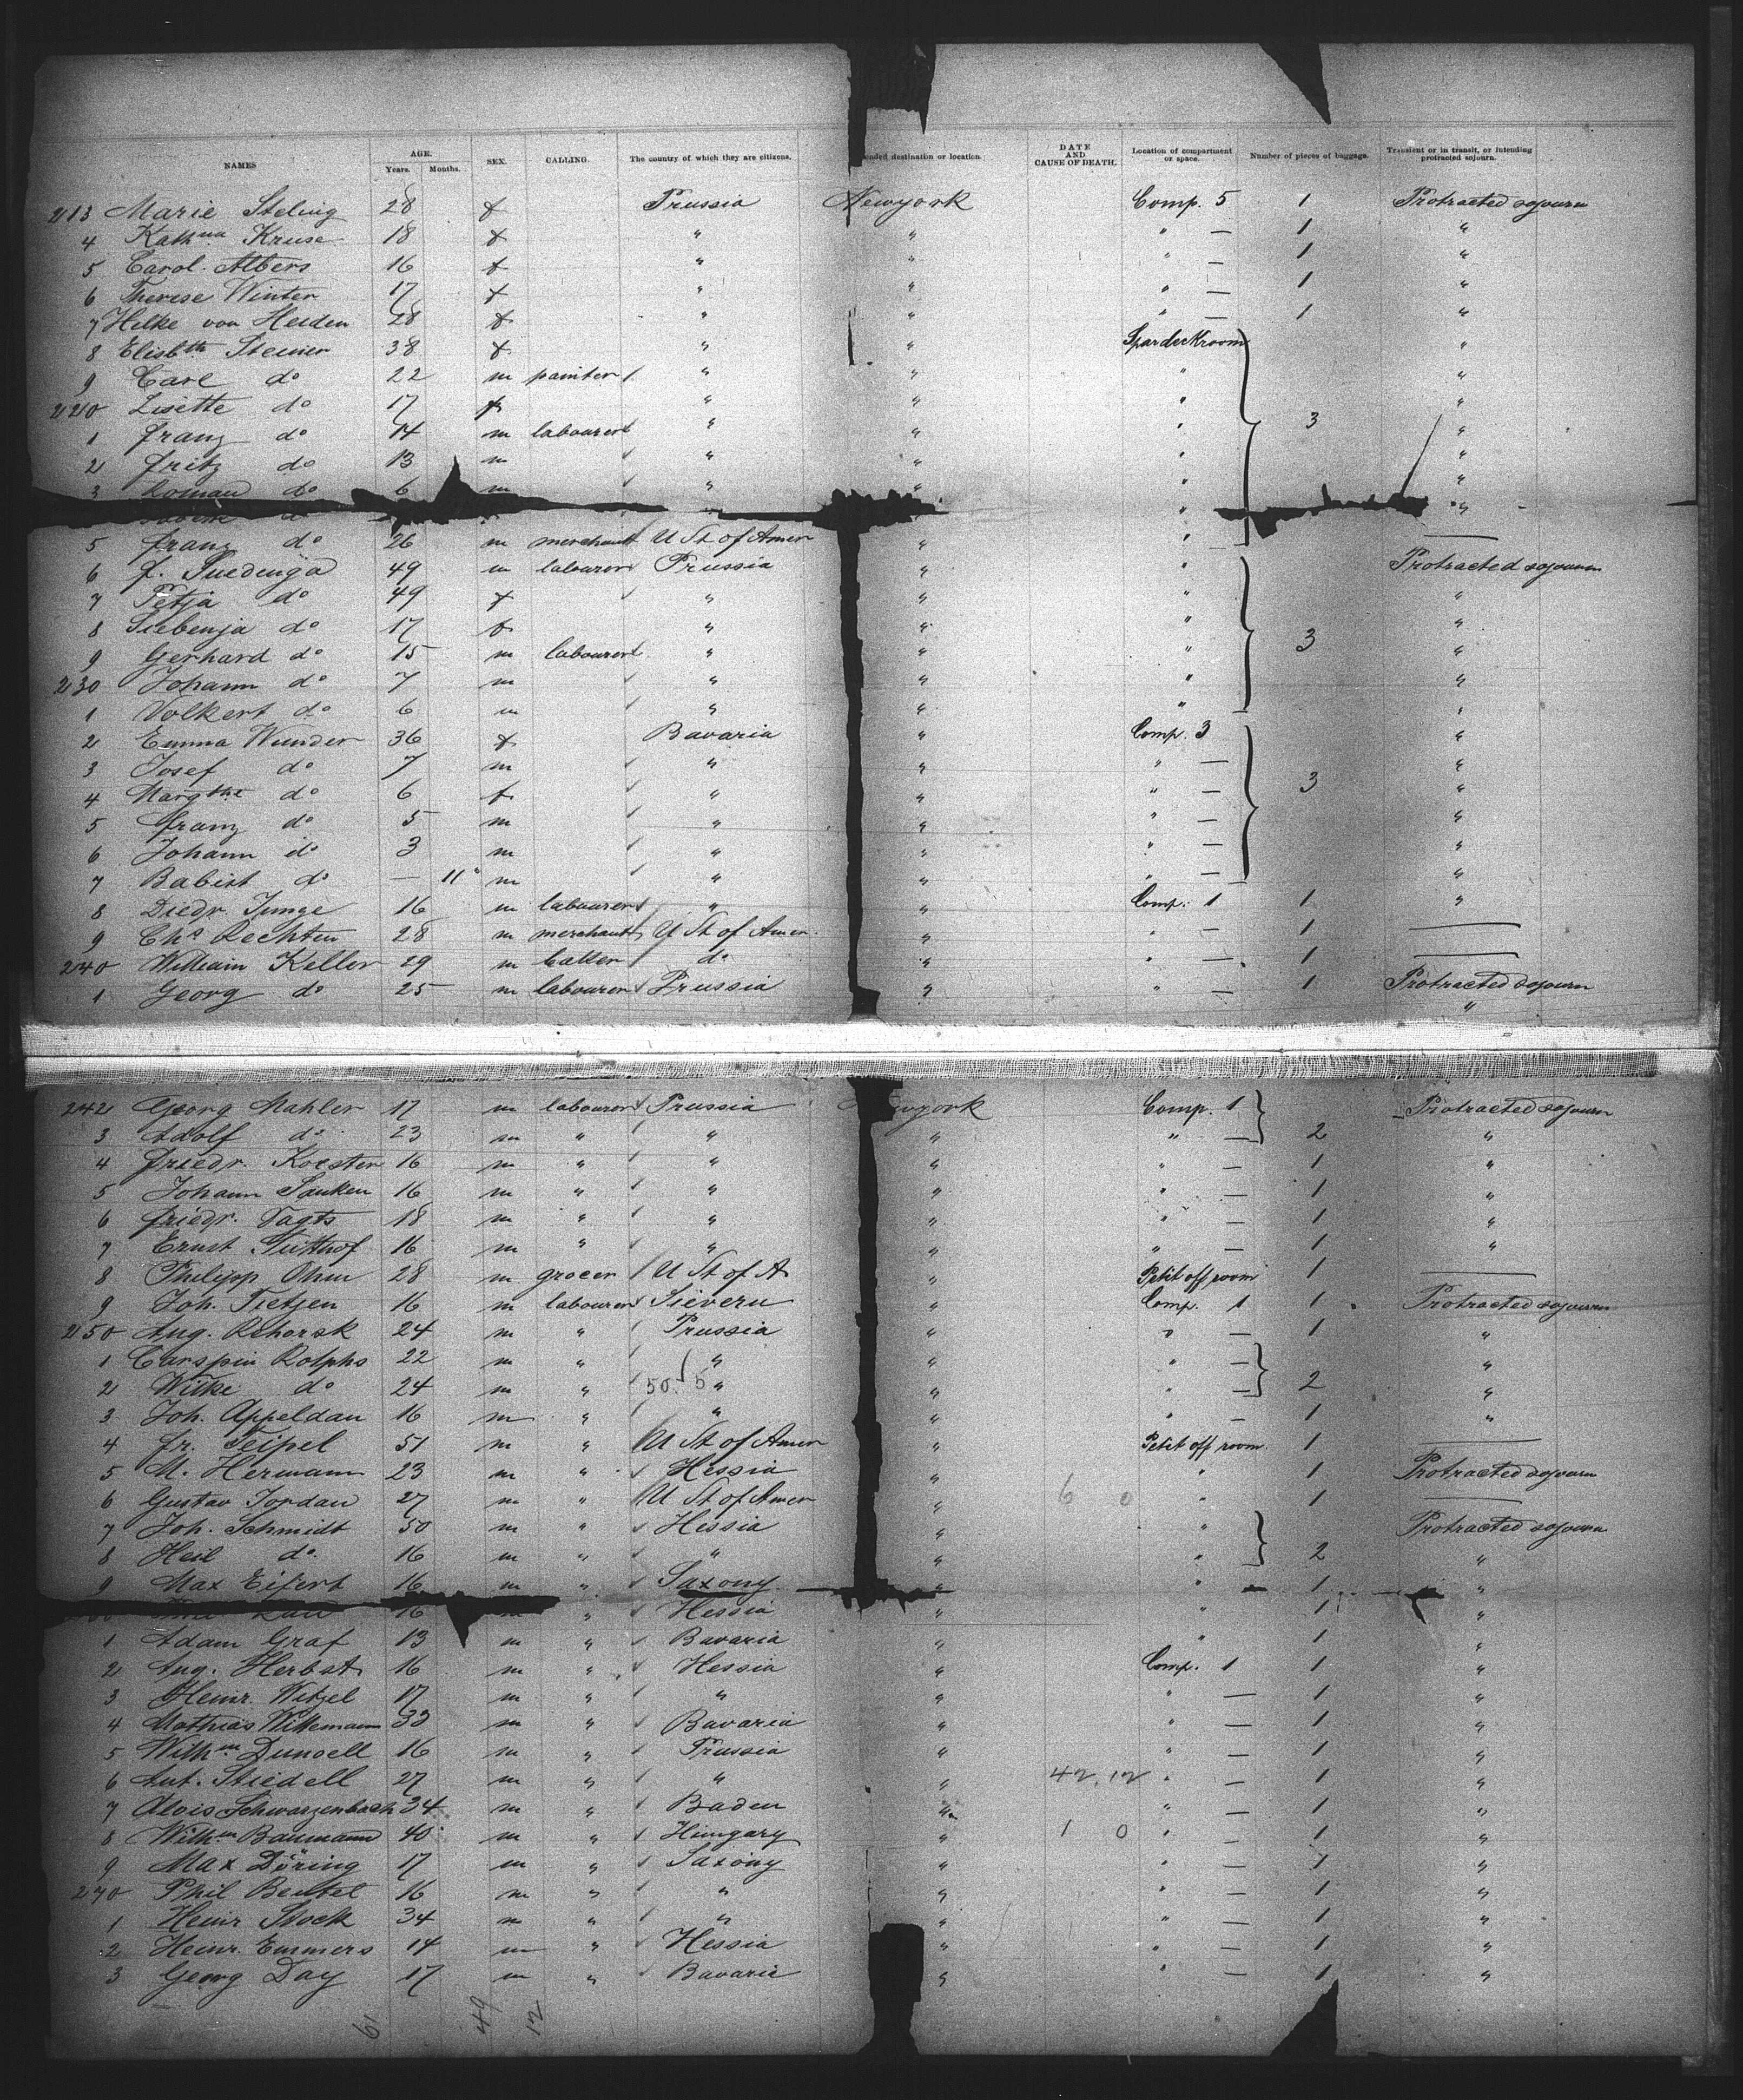 NAMES AGE. Years. Months. SEX. CALLING. The country of which they are citizens. ended destination or location. DATE AND CAUSE OF DEATH. Location of compartment or space. Number of pieces of baggage. Transient or in transit, or intending protracted sojourn.
213 Marie Steling 28 f Prussia Newyork Comp. 5 1 Protracted sojourn
4 Kathna Kruse 18 f " " " — 1 "
5 Carol. Albers 16 f " " " — 1 "
6 Therese Winter 17 f " " " — 1 "
7 Helke von Heiden 28 f " " " — 1 "
8 Elisbth Steiner 38 f " " Spardeckroom "
9 Carl do 22 m painter " " " "
220 Lisette do 17 f " " " "
1 Franz do 14 m labourer " " " 3 "
2 Fritz do 13 m " " " "
3 Roman do 6 m " " " "
do " "
5 Franz do 26 m merchant U St of Amer " " —
6 J. Suedinga 49 m labourer Prussia " " Protracted sojourn
7 Petja do 49 f " " " "
8 Siebenja do 17 f " " " "
9 Gerhard do 15 m labourer " " " 3 "
230 Johann do 7 m " " " "
1 Volkert do 6 m " " " "
2 Emma Wunder 36 f Bavaria " Comp. 3 "
3 Josef do 7 m " " " — "
4 Margthe do 6 f " " " — 3 "
5 Franz do 5 m " " " — "
6 Johann do 3 m " " " — "
7 Babist do — 11 m " " " — "
8 Diedr. Junge 16 m labourer " " Comp. 1 1 "
9 Chs Rechten 28 m merchant U St of Amer. " " — 1 —
240 William Keller 29 m do " " — 1 —
1 Georg do 25 m labourer Prussia " " — 1 Protracted sojourn
"
242 Georg Mahler 17 m labourer Prussia Newyork Comp. 1 Protracted sojourn
3 Adolf do 23 m " " " " — 2 "
4 Friedr. Koester 16 m " " " " — 1 "
5 Johann Sanken 16 m " " " " — 1 "
6 Friedr. Tagts 18 m " " " " — 1 "
7 Ernst Suthof 16 m " " " " — 1 "
8 Philipp Ohm 28 m grocer U St of A " Petit off room 1 —
9 Joh. Tietjen 16 m labourer Sievern " Comp. 1 1 Protracted sojourn
250 Aug. Rehorsk 24 m " Prussia " " — 1 "
1 Carspin Rolphs 22 m " " " " — "
2 Wilke do 24 m " 50. 5 " " " — 2 "
3 Joh. Appeldan 16 m " " " " — 1 "
4 Fr. Teipel 51 m " U St of Amer " Petit off room. 1 —
5 M. Hermann 23 m " Hessia " " 1 Protracted sojourn
6 Gustav Jordan 27 m " U St of Amer " 6 0 " 1 —
7 Joh. Schmidt 50 m " Hessia " " Protracted sojourn
8 Heil do. 16 m " " " " 2 "
9 Max Eifert 16 m " Saxony " " 1 "
16 m " Hessia " " 1 "
1 Adam Graf 13 m " Bavaria " " 1 "
2 Aug. Herbst 16 m " Hessia " Comp. 1 1 "
3 Heinr. Witzel 17 m " " " " — 1 "
4 Mathias Wittemann 33 m " Bavaria " " — 1 "
5 Wilhm Dunsell 16 m " Prussia " " — 1 "
6 Ant. Stiedell 27 m " " " 42. 12 " — 1 "
7 Alois Schwarzenbach 34 m " Baden " " — 1 "
8 Wilhm Baumann 40 m " Hungary " 1 0 " — 1 "
9 Max Döring 17 m " Saxony " " — 1 "
270 Phil Beutel 16 m " " " " — 1 "
1 Heinr Stock 34 m " " " " — 1 "
2 Heinr. Emmers 14 m " Hessia " " — 1 "
3 Georg Day 17 m " Bavaria " " — 1 "
61 49 12